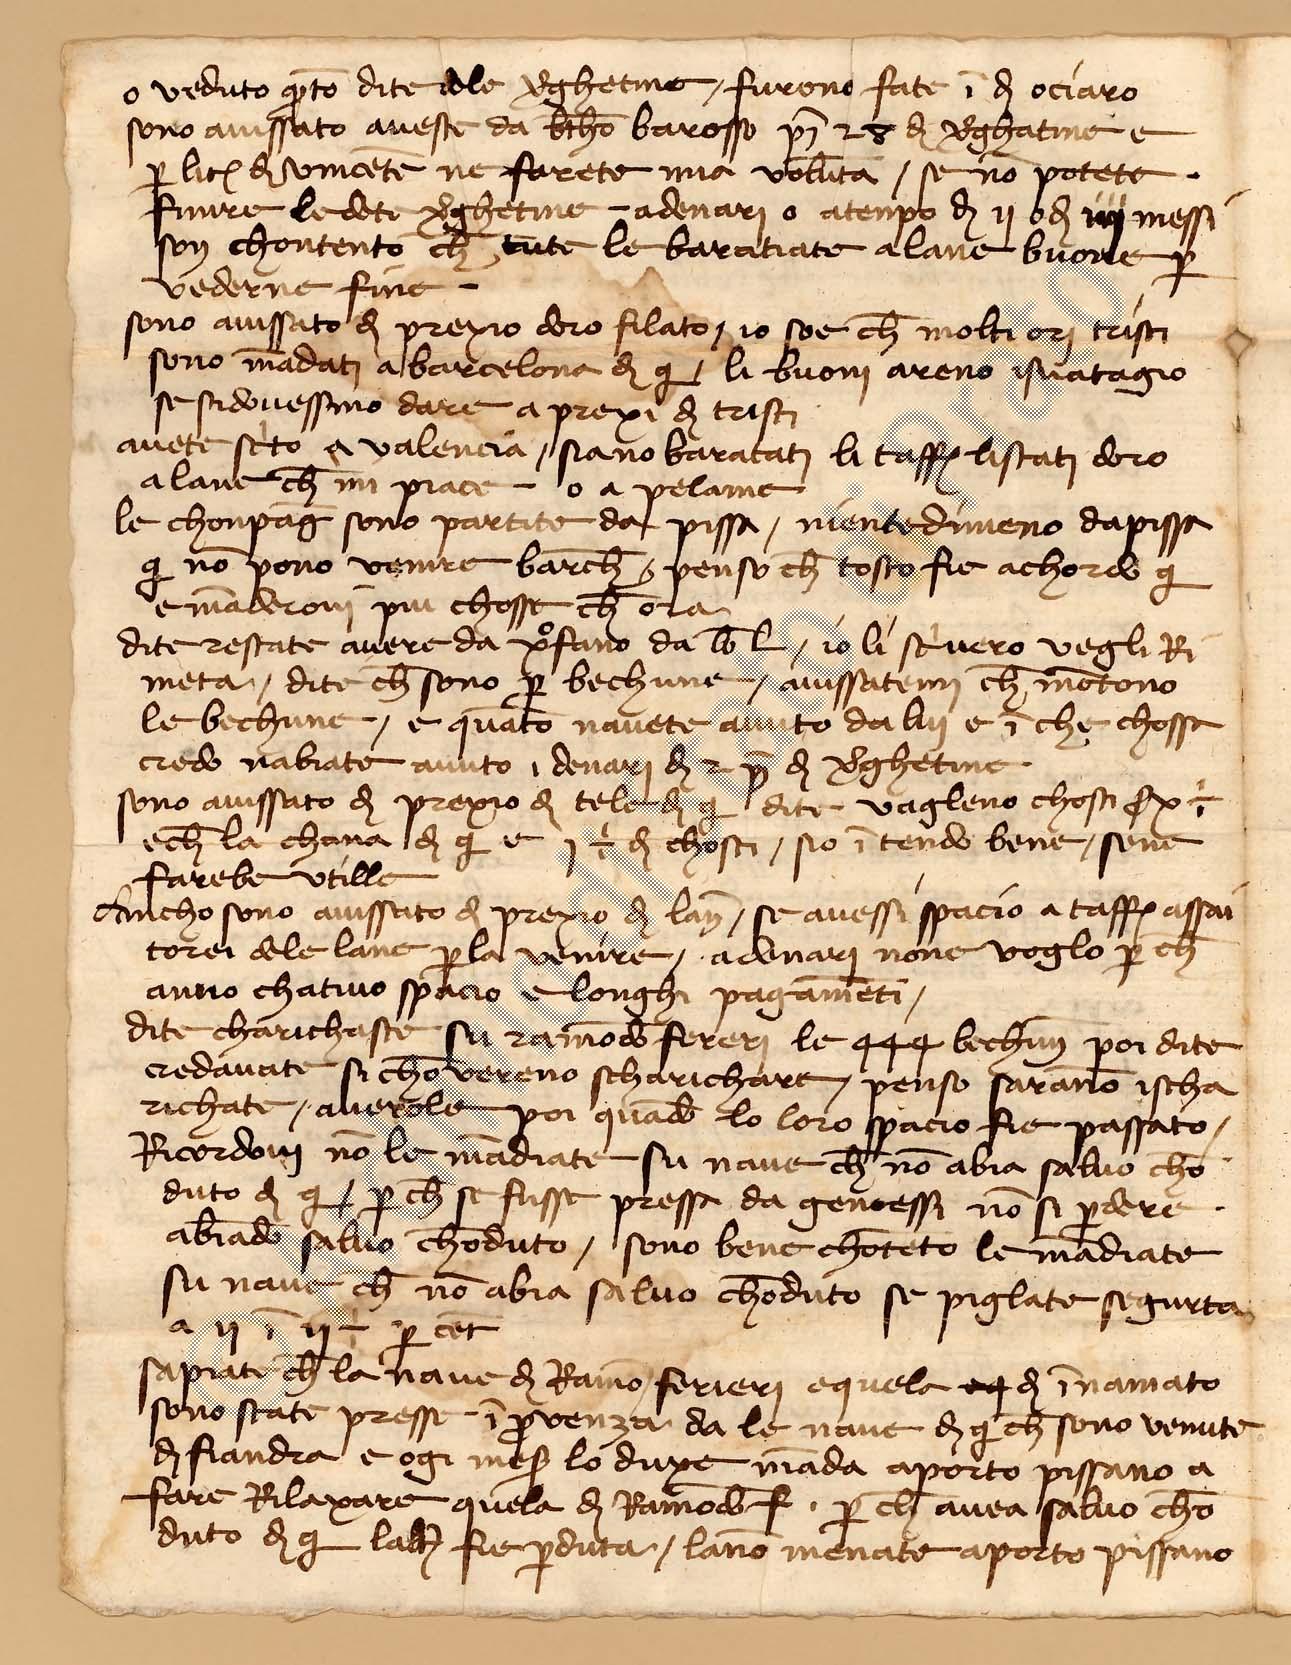 o veduto q̄to dite dele v̄ghetine / fureno fate ī d ociaro
sono avissato aveste da b̄tho barosso p̄i 28 d v̄ghatine e
ꝑ d somēte ne farete mia volūta / se nō potete
finire le dete v̄ghetine a denari o a tenpo d ij o d iiij messi
son chontento ch̄ tute le baratiate a lane buone ꝑ
vederne fine
sono avissato d prexio doro filato / io soe ch̄ molti ori tristi
sono m̄adati a barcelona d q / li buoni areno isvatagio
se si dovessino dare a prexi d tristi
avete sc̄to a valencia / siano baratati li taff listati doro
a lane ch̄ mi piace o a pelame
le chonpāg sono partite da pissa / niente di meno da pissa
q nō pono venire barch̄ / penso ch̄ tosto fie achordo q
e m̄aderovi piu chosse ch̄ ora
dite restate avere da x̄ofano da / io li sc̄vero vegli Ri
meta / dite ch̄ sono ꝑ bechune / avissatemi ch̄ mōtono
le bechune / e quāto navete avuto da lui e ī che chossa
credo nabiate avuto i denari d 2 p̄ d v̄ghetine
sono avissato d prexio d tele d q dite vagleno chosti x
e ch̄ la chana d q e j d chosti / sio ītendo bene / sene
farebe utille
Ancho sono avissato d prexio d lan̄ / se avessi spacio a taff assai
torei dele lane ꝑ la venire / a denari none voglo ꝑ ch̄
anno chativo spacio e longhi pagamēti /
dite charichaste su ramōdo fereri le 444 bechun̄ poi dite
credavate si chōvereno scharichare / penso saranō ischa
richate / averole poi quādo lo loro spacio fie passato /
Ricordovi nō le m̄adiate su nave ch̄ nō abia salvo chō
duto d q / ꝑ ch̄ se fusse pressa da genoessi nō si ꝑdere
abiādo salvo chōduto / sono bene chōteto le m̄adiate
su nave ch̄ nō abia salvo chōduto se piglate segurta
a ij ī ij ÷ ꝑ cēt
sapiate ch̄ la nave d Ramō ferieri e quela d īnamato
sono state presse ī ꝓvenza da le nave d q ch̄ sono venute
d fiandra e ogi mes̄ lo duxe m̄ada a porto pissano a
fare Rilaxare quela d Ramōdo f. ꝑ ch̄ avea salvo chō
duto d q fie ꝑduta / lanō menate a porto pissano